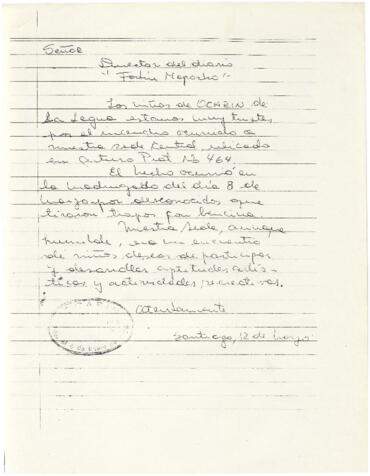 Señor
Director del diario
"Fortín Mapocho"
Los niños de OCARIN de
La Legua estamos muy tristes
por el incendio ocurrido a
nuestra sede central, ubicado
en Arturo Prat Nº 464.
El hecho ocurrió en
la madrugada del día 8 de
marzo por desconocidos que
tiraron trapos con bencina
Nuestra sede, aunque
humilde, era un encuentro
de niños deseosos de participar
y desarrollar aptitudes artís-
ticas y actividades recreativas.
Atentamente
Santiago, 12 de marzo